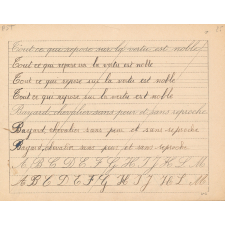 Tout ce que repose sur la vertu est noble
Tout ce que repose sur la vertu est noble
Tout ce que repose sur la vertu est noble
Tout ce que repose sur la vertu est noble
Bayard, chevalier sans peur et sans reproche
Bayard, chevalier sans peur et sans reproche
Bayard, chevalier sans peur et sans reproche
A B C D E F G H I J K L M
A B C D E F G H I J K L M